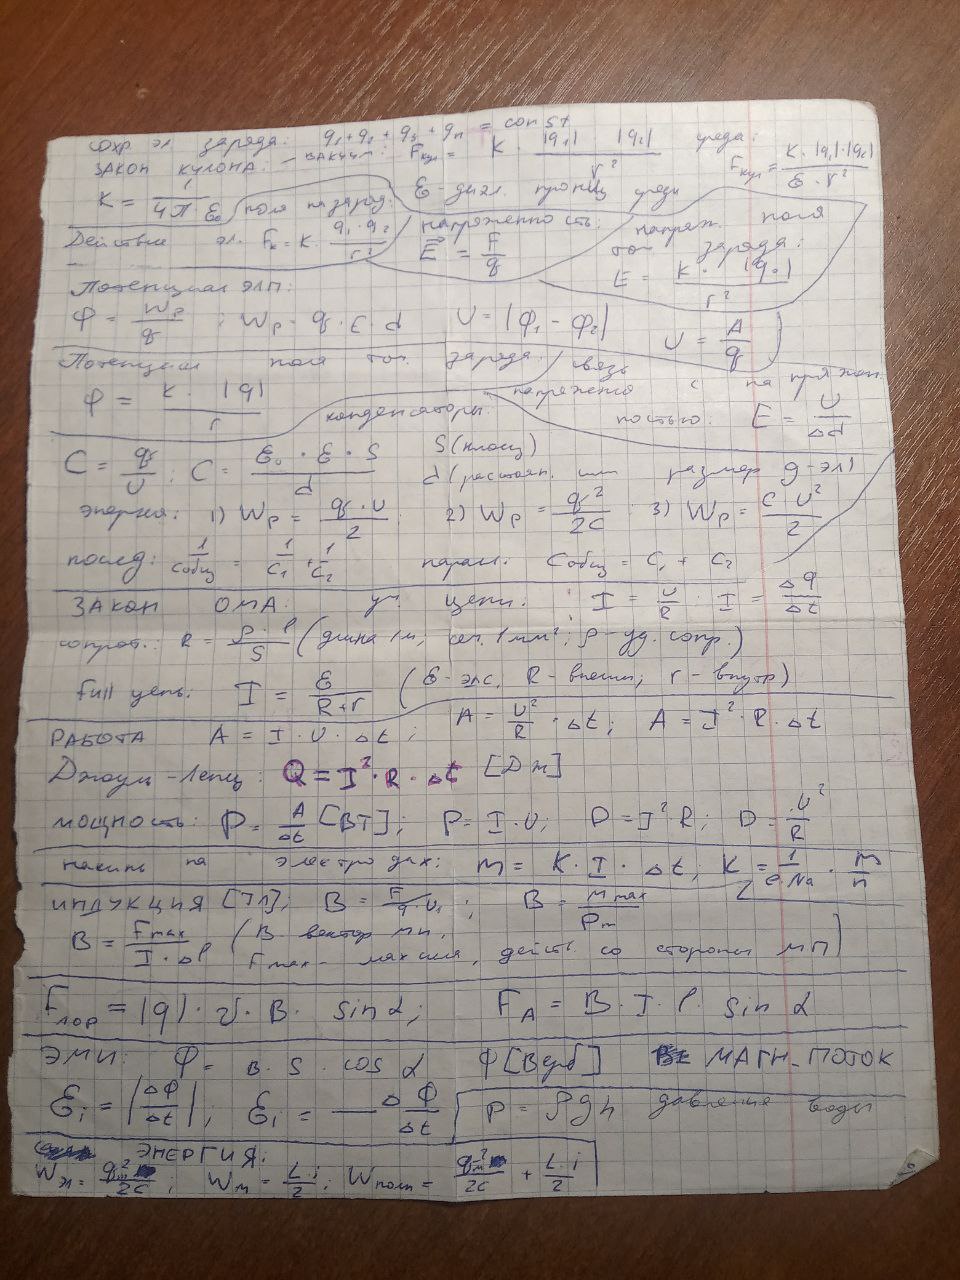 сохр. эл. заряда: q₁ + q₂ + q₃ + qₙ = const
ЗАКОН КУЛОНА: - вакуум: Fкул = K · |q₁| · |q₂| / r² среда: Fкул = K · |q₁| · |q₂| / ε · r²
K = 1 / 4π ε₀ поля на заряд. ε - диэл. прониц среды
Действие эл. Fк = K · q₁ · q₂ / r² напряженность: E = F / q напряж. поля точ заряда: E = K · |q₀| / r²
Потенциал элп:
φ = Wp / q ; Wp = q · ε · d U = |φ₁ - φ₂| U = A / q
Потенциал поля точ. заряда. связь напряженно с напряжен. ностью: E = U / Δd
φ = K · |q| / r конденсаторы:
C = q / U ; C = ε₀ · ε · S / d S (площ) d (расстоян. или размер д-эл)
энергия: 1) Wp = q · U / 2 ; 2) Wp = q² / 2C ; 3) Wp = C U² / 2
послед: 1 / Cобщ = 1 / C₁ + 1 / C₂ парал. Cобщ = C₁ + C₂
ЗАКОН ОМА. уч. цепи. I = U / R ; I = Δq / Δt
сопрот.: R = ρ · l / S (длина 1м, сеч. 1 мм²; ρ - уд. сопр.)
Full цепь: I = ε / R + r (ε - эдс, R - внешн; r - внутр)
РАБОТА A = I · U · Δt ; A = U² / R · Δt ; A = I² · R · Δt
Джоуль - Ленц: Q = I² · R · Δt [Дж]
МОЩНОСТЬ: P = A / Δt [ВТ]; P = I · U; P = I² R; P = U² / R
на электродах: m = K · I · Δt; K = 1 / e · Na · m / n
ИНДУКЦИЯ [Тл]; B = F / q · υ₁ ; B = Mmax / Pm
B = Fmax / I · Δl (B вектор МИ,
Fmax - мах сила, действ. со стороны МП)
Fлор = |q| · υ · B · sin α; FA = B · I · l · sin α
ЭМИ: Φ = B · S · cos α Φ [Вебб] МАГН. ПОТОК
εi = |ΔΦ / Δt| ; εi = — ΔΦ / Δt P = ρgh давление воды
ЭНЕРГИЯ:
Wэл = qm² / 2C ; Wм = L · i / 2 ; Wполн = qm² / 2C + L · i / 2